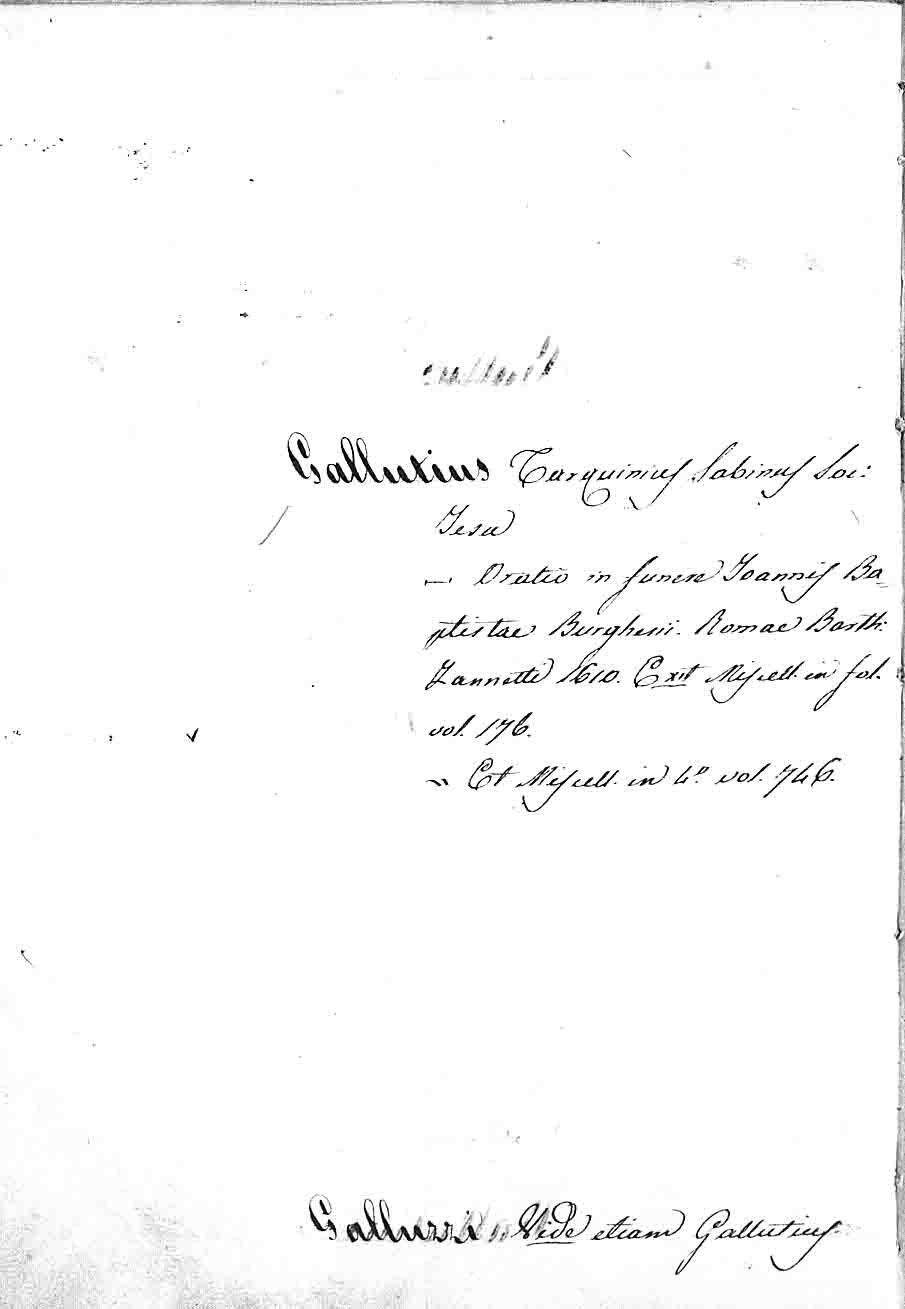 Gallutius Tarquinius Sabinus Soc:
Jesu
— Oratio in funere Joannis Ba-
ptistae Burghesii. Romae Barth:
Zannetti 1610. Exit Miscell. in fol.
vol. 176.
" Et Miscell. in 4º vol. 746.
Galluzzi Vide etiam Gallutius.